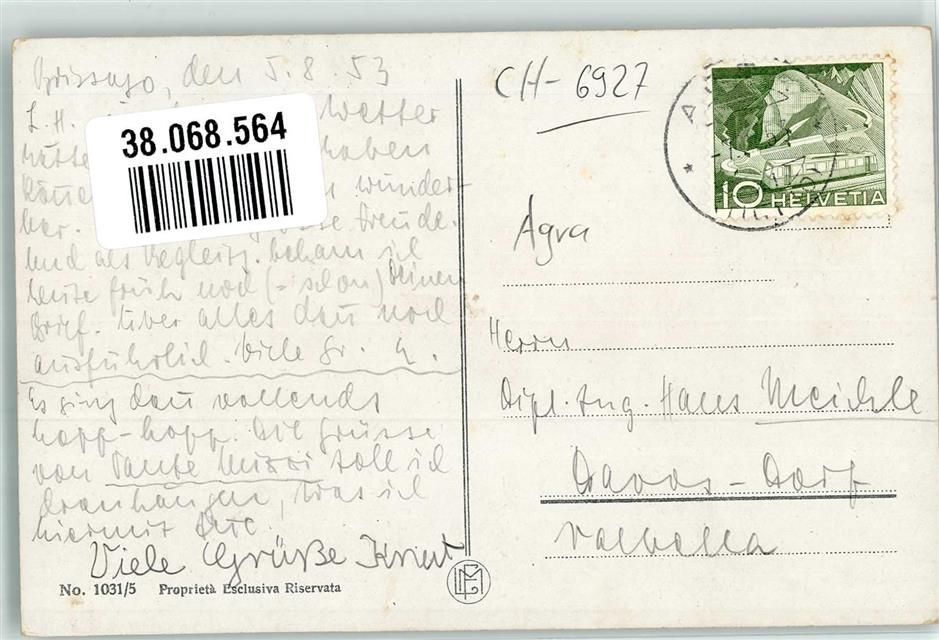 Brissago, den 5.8.53
L.H. Wetter
hätte haben
können wunder-
bar. Freude.
Und als Begleitg. bekam ich
heute früh noch (= schon) Deinen
Brief. Über alles dann noch
ausführlich. Viele Gr.
Es ging dann vollends
hopp-hopp. Die Grüsse
von Tante Mizzi soll ich
dranhängen, was ich
hiermit tue.
Viele Grüße
No. 1031/5 Proprietà Esclusiva Riservata
38.068.564
CH-6927
10 HELVETIA
Agra
Herrn
Dipl. Ing. Hans Meichle
Davos-Dorf
Valbella